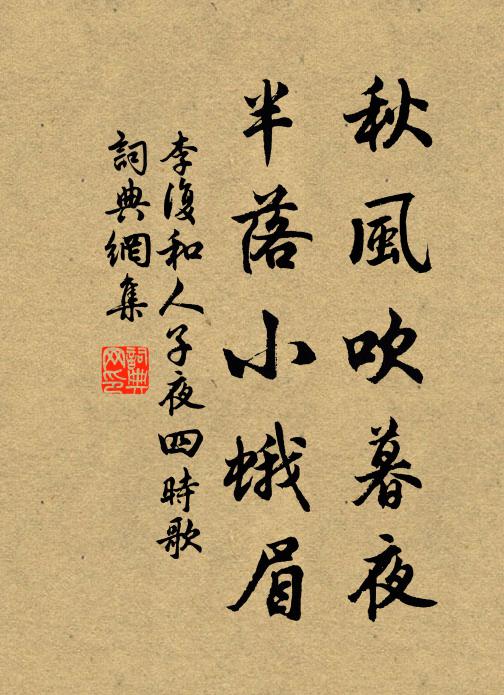 秋風吹暮夜
半落小蛾眉
李復和人子夜四時歌
詞典網集
詞典网印